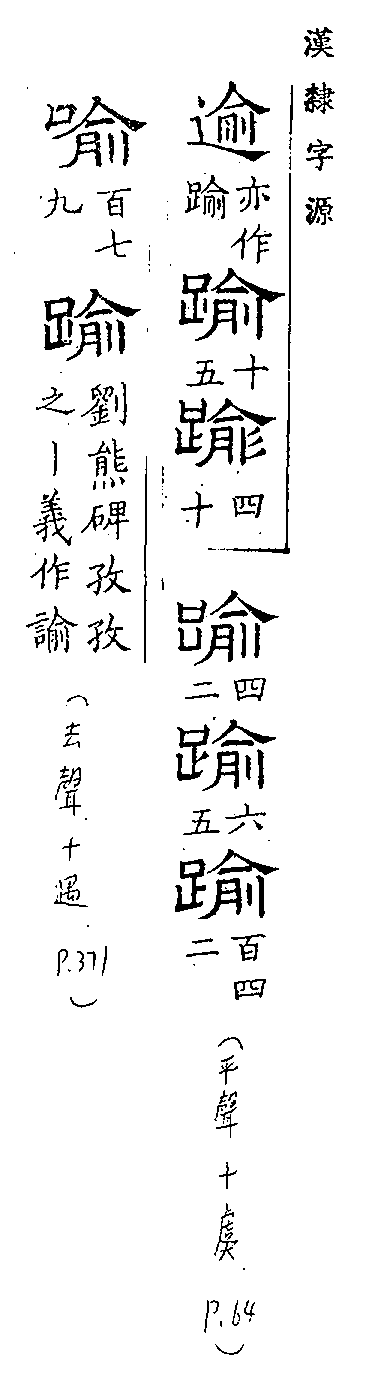 漢隸字源
逾亦作踰踰十五踰四十踰四二踰六五踰百四二(平聲十虞 P.64)
喻百七九踰劉熊碑孜孜之｜義作諭(去聲十遇 P.371)